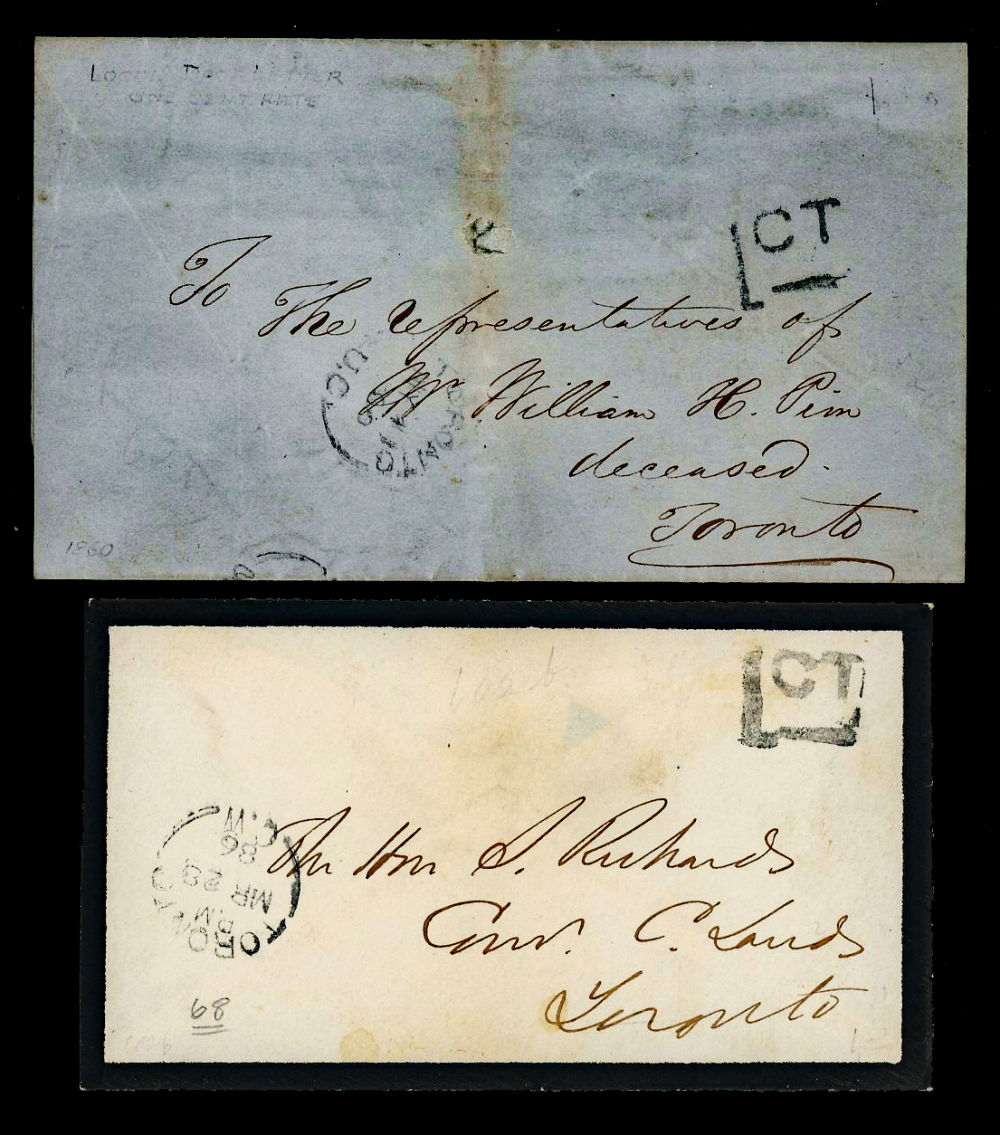 LOCAL DROP LETTER
ONE CENT RATE
1CT
To
The representatives of
Mr William H. Pim
deceased.
Toronto
TORONTO
U.C.
1860
1CT
162b
The Hon S. Richards
Comr. C. Lands
Toronto
TORONTO
P.M
MR 23
68
C.W
68